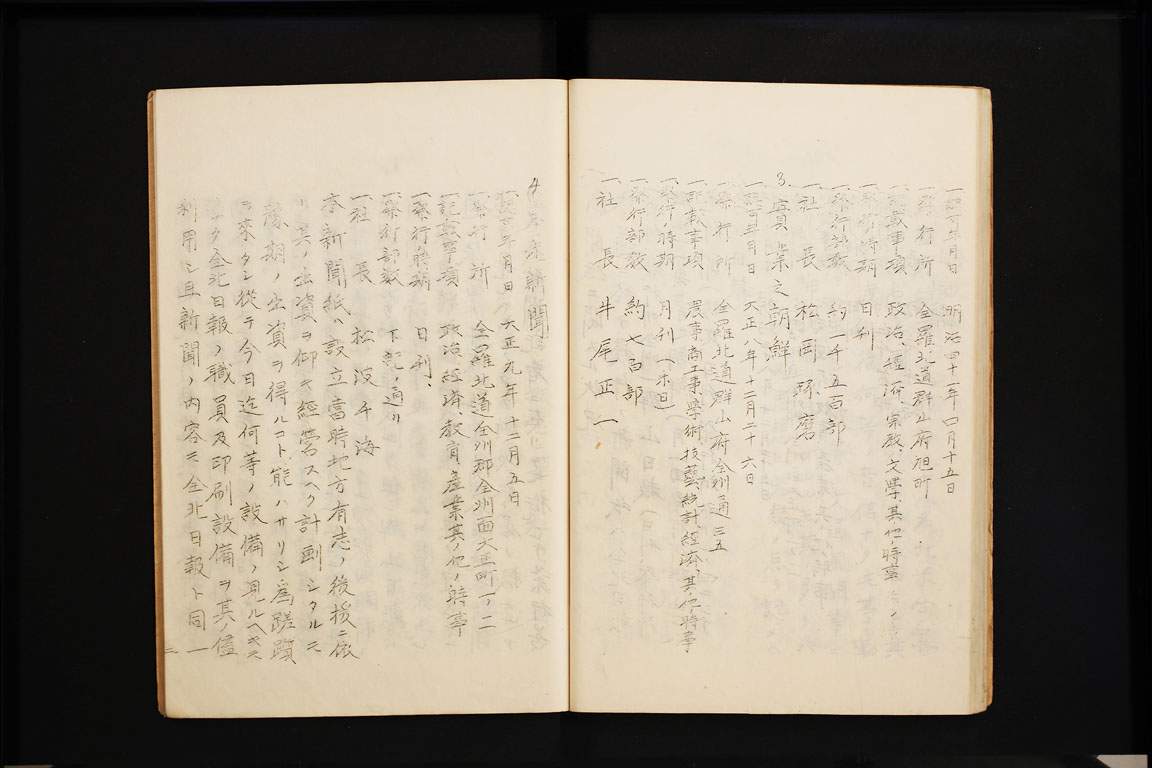 一、認可年月日 明治四十一年四月十五日
一、發行所 全羅北道群山府旭町
一、記載事項 政治、經濟、宗教、文學、其他ノ時事
一、發行時期 日刊
一、發行部數 約一千五百部
一、社長 松岡琢磨
3. 實業之朝鮮
一、認可年月日 大正八年十二月二十六日
一、發行所 全羅北道群山府全州通三五
一、記載事項 農事、商工事、學術、技藝、統計、經濟、其ノ他ノ時事
一、發行ノ時期 月刊(一木日)
一、發行部數 約七百部
一、社長 牛尾正一
4. 新聞
一、認可年月日 大正九年十二月五日
一、發行所 全羅北道全州郡全州面大正町一ノ二
一、記載事項 政治、經濟、教育、產業、其ノ他ノ時事
一、發行時期 日刊、
一、發行部數 下記ノ通リ
一、社長 松波千海
本新聞紙ハ設立當時地方有志ノ後援ニ依
リ其ノ出資ヲ仰キ經營スヘク計劃シタルモ
豫期ノ出資ヲ得ルコト能ハサリシ爲蹉躓
ヲ來タシ從テ今日迄何等ノ設備ノ見ルヘキモ
ノナク全北日報ノ職員及印刷設備ヲ其ノ儘
利用シ且新聞ノ內容モ全北日報ト同一
二